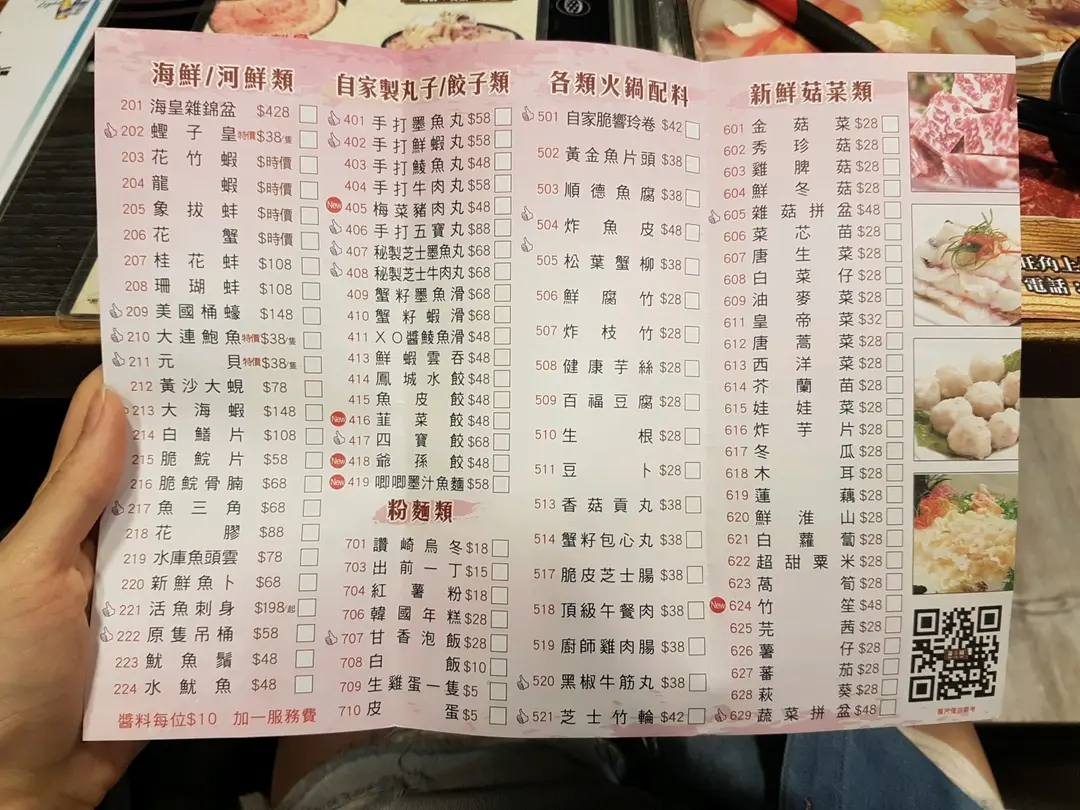 海鮮/河鮮類
201 海皇雜錦盆 $428
202 蟶子皇 特價$38/隻
203 花竹蝦 $時價
204 龍蝦 $時價
205 象拔蚌 $時價
206 花蟹 $時價
207 桂花蚌 $108
208 珊瑚蚌 $108
209 美國桶蠔 $148
210 大連鮑魚 特價$38/隻
211 元貝 特價$38/隻
212 黃沙大蜆 $78
213 大海蝦 $148
214 白鱔片 $108
215 脆鯇片 $58
216 脆鯇骨腩 $68
217 魚三角 $68
218 花膠 $88
219 水庫魚頭雲 $78
220 新鮮魚卜 $68
221 活魚刺身 $198/起
222 原隻吊桶 $58
223 魷魚鬚 $48
224 水魷魚 $48
醬料每位$10 加一服務費
自家製丸子/餃子類
401 手打墨魚丸 $58
402 手打鮮蝦丸 $58
403 手打鯪魚丸 $48
404 手打牛肉丸 $58
New 405 梅菜豬肉丸 $48
406 手打五寶丸 $88
407 秘製芝士墨魚丸 $68
408 秘製芝士牛肉丸 $68
409 蟹籽墨魚滑 $68
410 蟹籽蝦滑 $68
411 XO醬鯪魚滑 $48
413 鮮蝦雲吞 $48
414 鳳城水餃 $48
415 魚皮餃 $48
New 416 韮菜餃 $48
417 四寶餃 $68
New 418 爺孫餃 $48
New 419 唧唧墨汁魚麵 $58
粉麵類
701 讚崎烏冬 $18
703 出前一丁 $15
704 紅薯粉 $18
706 韓國年糕 $28
707 甘香泡飯 $28
708 白飯 $10
709 生雞蛋一隻 $5
710 皮蛋 $5
各類火鍋配料
501 自家脆響玲卷 $42
502 黃金魚片頭 $38
503 順德魚腐 $38
504 炸魚皮 $48
505 松葉蟹柳 $38
506 鮮腐竹 $28
507 炸枝竹 $28
508 健康芋絲 $28
509 百福豆腐 $28
510 生根 $28
511 豆卜 $28
513 香菇貢丸 $38
514 蟹籽包心丸 $38
517 脆皮芝士腸 $38
518 頂級午餐肉 $38
519 廚師雞肉腸 $38
520 黑椒牛筋丸 $38
521 芝士竹輪 $42
新鮮菇菜類
601 金菇菜 $28
602 秀珍菇 $28
603 雞脾菇 $28
604 鮮冬菇 $28
605 雜菇拼盆 $48
606 菜芯苗 $28
607 唐生菜 $28
608 白菜仔 $28
609 油麥菜 $28
611 皇帝菜 $32
612 唐蒿菜 $28
613 西洋菜 $28
614 芥蘭苗 $28
615 娃娃菜 $28
616 炸芋片 $28
617 冬瓜 $28
618 木耳 $28
619 蓮藕 $28
620 鮮淮山 $28
621 白蘿蔔 $28
622 超甜粟米 $28
623 萵筍 $28
New 624 竹笙 $48
625 芫茜 $28
626 薯仔 $28
627 蕃茄 $28
628 萩葵 $28
629 蔬菜拼盆 $48
旺角上
電話